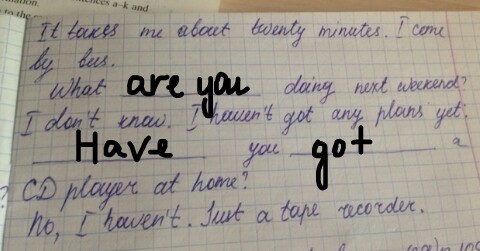 mation.
ences a–k and
to the
It takes me about twenty minutes. I come
by bus.
What are you doing next weekend?
I don't know. I haven't got any plans yet.
Have you got a
CD player at home?
No, I haven't. Just a tape recorder.